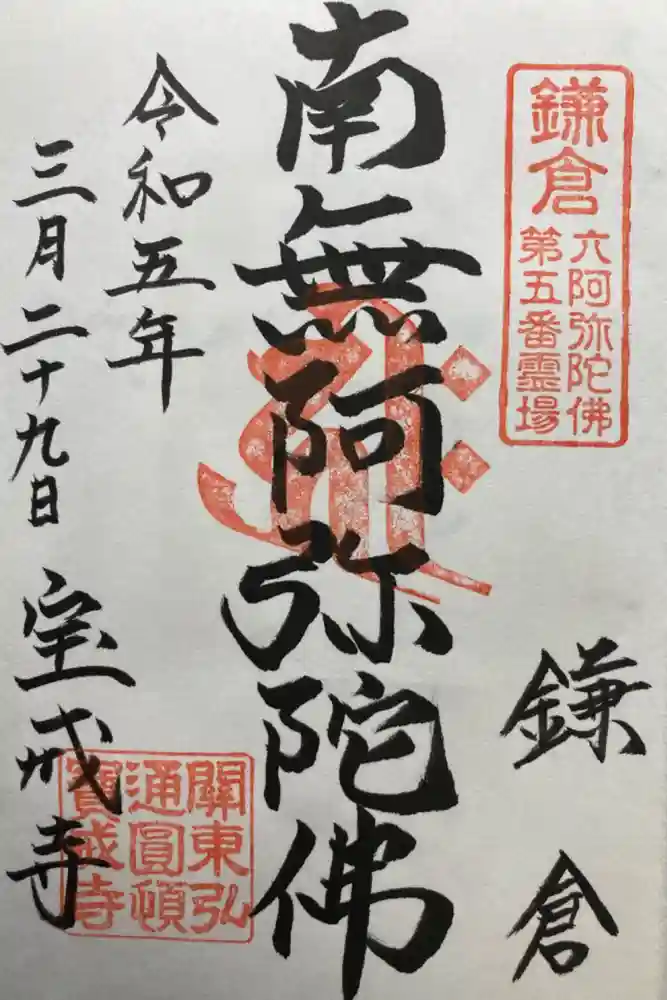 鎌倉
六阿弥陀佛
第五番霊場
鎌倉
南無阿弥陀佛
令和五年
三月二十九日
宝戒寺
關東弘
通圓頓
寶戒寺